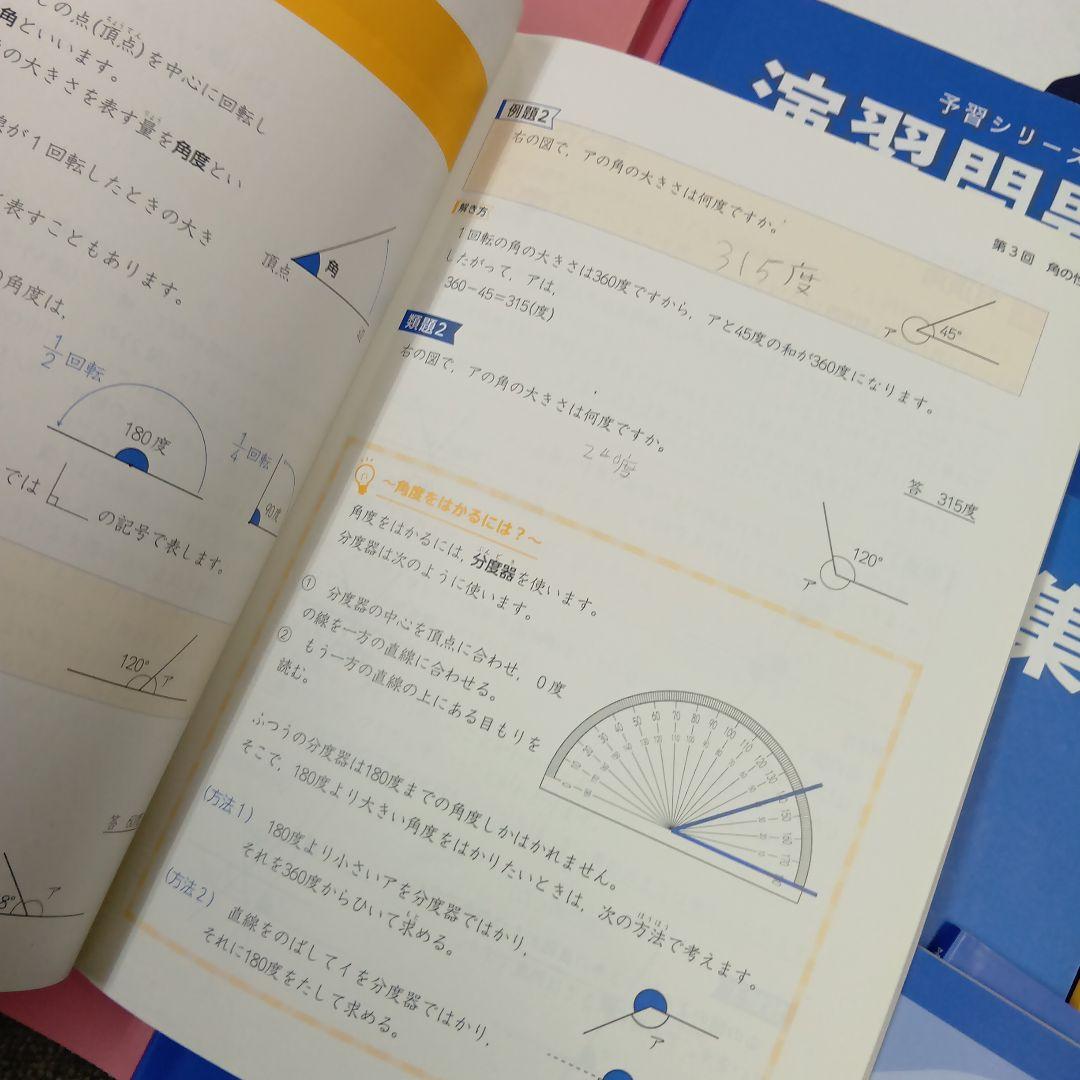 この点(頂点)を中心に回転し
ちょうてん
角といいます。
の大きさを表す量を角度とい
りょう
線が1回転したときの大き
表すこともあります。
の角度は,
頂点
角
1/2 回転
180度
1/4 回転
90度
では
の記号で表します。
120°
ア
答
8°
ア
例題2
右の図で,アの角の大きさは何度ですか。
315度
ア
45°
解き方
1回転の角の大きさは360度ですから,アと45度の和が360度になります。
したがって,アは,
360-45=315(度)
答 315度
類題2
右の図で,アの角の大きさは何度ですか。
240度
120°
ア
~角度をはかるには?~
角度をはかるには,分度器を使います。
ぶんどき
分度器は次のように使います。
① 分度器の中心を頂点に合わせ,0度
の線を一方の直線に合わせる。
② もう一方の直線の上にある目もりを
読む。
ふつうの分度器は180度までの角度しかはかれません。
そこで,180度より大きい角度をはかりたいときは,次の方法で考えます。
ほうほう
(方法1)
180度より小さいアを分度器ではかり,
それを360度からひいて求める。
もと
(方法2)
直線をのばしてイを分度器ではかり,
それに180度をたして求める。
ア
予習シリーズ
演習問
集
第3回 角の性